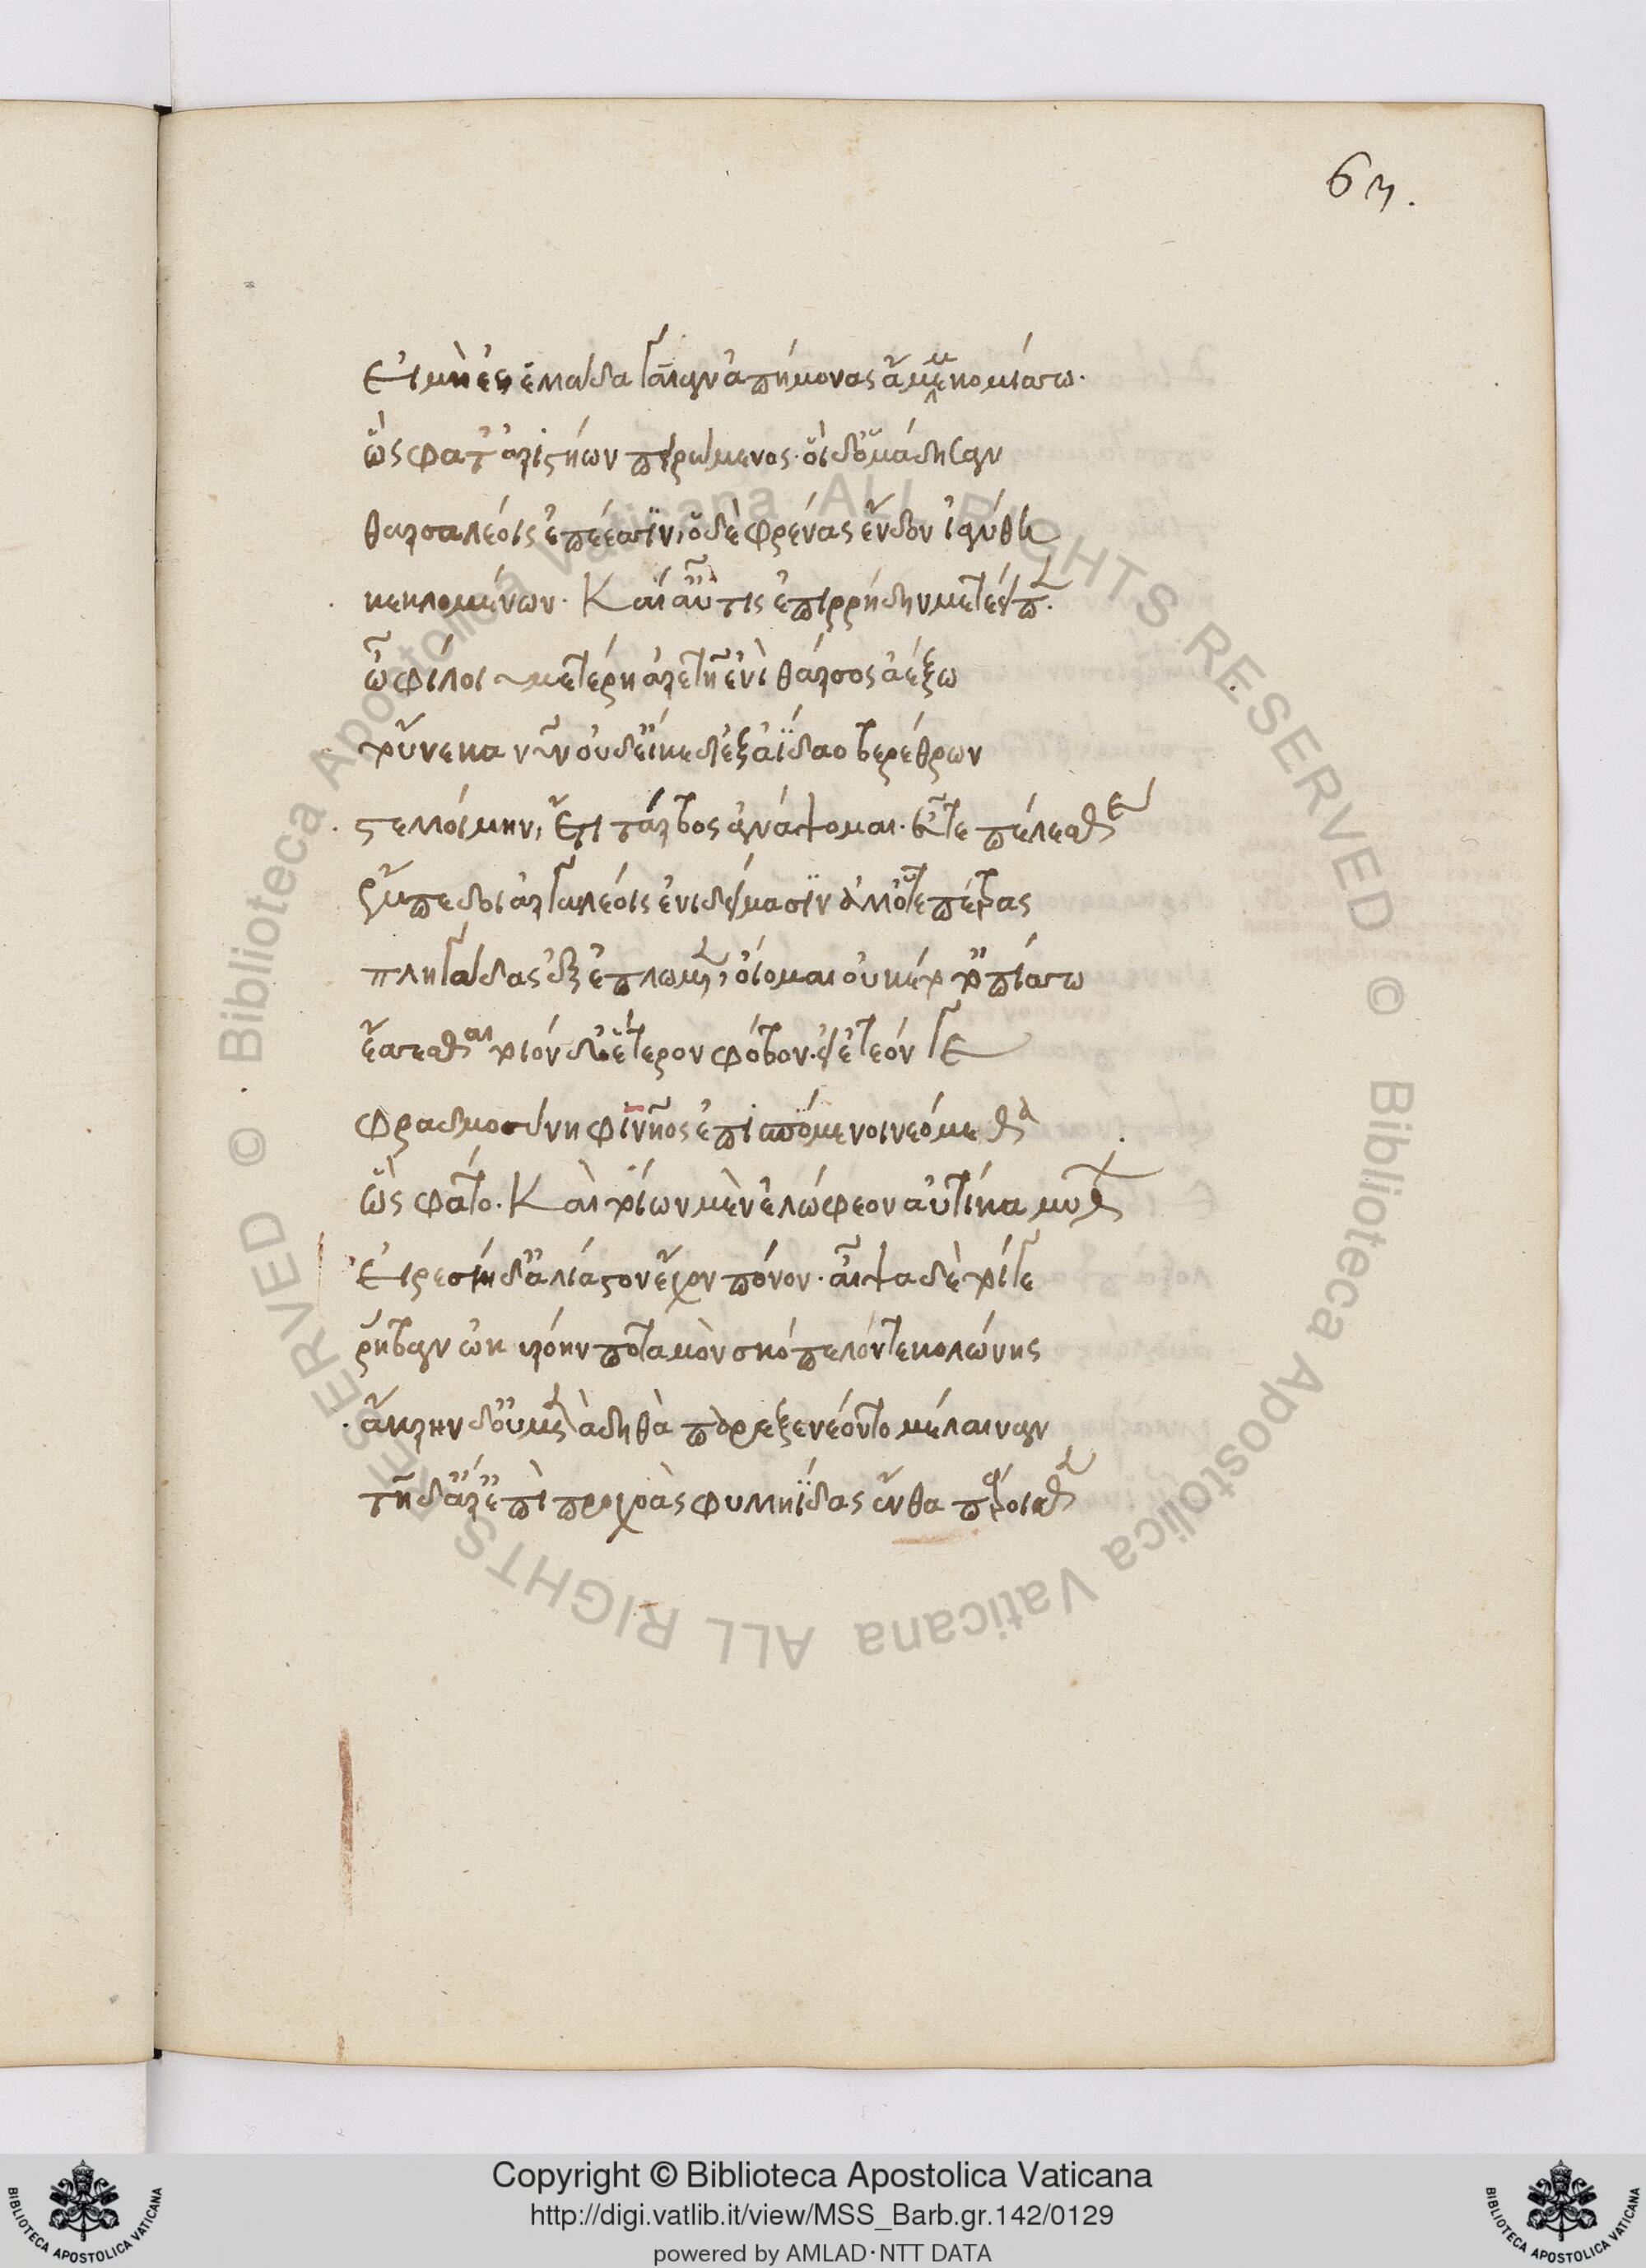 63.
εἰ μὴ ἐς ἑλλάδα γαῖαν ἀπήμονας ὔμμε κομίσσω.
ὣς φάτ' ἀριστήων πειρώμενος. οἱ δ' ὁμάδησαν
θαρσαλέοις ἐπέεσσιν, ὁ δὲ φρένας ἔνδον ἰάνθη
κεκλομένων. Καί ῥ' αὖτις ἐπιρρήδην μετέειπεν.
ὦ φίλοι ὑμετέρῃ ἀρετῇ ἔνι θάρσος ἀέξω
τοὔνεκα νῦν οὐδ' εἴ κε δι' ἐξ ἀΐδαο βερέθρων
στελλοίμην, ἔτι τάρβος ἀνάψομαι. εὖτε πέλεσθε
ἔμπεδοι ἀργαλέοις ἐνὶ δείμασιν ἀλλ' ὅτε πέτρας
πληγάδας ἐξέπλωμεν, ὀΐομαι οὐκ ἔτ' ὀπίσσω
ἔσσεσθαι τοιόνδ' ἕτερον φόβον. εἰ ἐτεόν γε
φραδμοσύνῃ φινῆος ἐπισπόμενοι νεόμεσθα
ὣς φάτο. Καὶ τοίων μὲν ἐλώφεον αὐτίκα μύθων
εἰρεσίῃ δ' ἀλίαστον ἔχον πόνον. αἶψα δὲ τοίγε
ῥήβαν ὠκυρόην ποταμὸν σκόπελόν τε κολώνης
ἄκρην δ' οὐ μετὰ δηθὰ παρεξενέοντο μέλαιναν
τῇ δ' ἄρ' ἐπὶ προχοὰς φυλληΐδας ἔνθα πάροιθεν
Copyright © Biblioteca Apostolica Vaticana
http://digi.vatlib.it/view/MSS_Barb.gr.142/0129
powered by AMLAD·NTT DATA
© Biblioteca Apostolica Vaticana ALL RIGHTS RESERVED
© Biblioteca Apostolica Vaticana ALL RIGHTS RESERVED
BIBLIOTECA APOSTOLICA VATICANA
BIBLIOTECA APOSTOLICA VATICANA